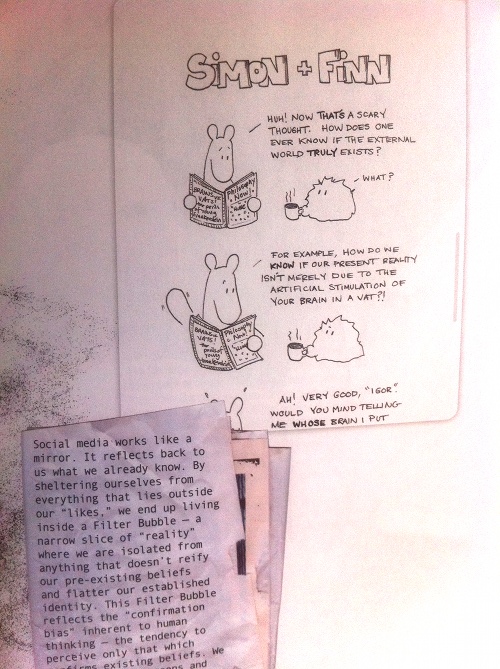 SiMON + FiNN
HUH! NOW THAT'S A SCARY
THOUGHT. HOW DOES ONE
EVER KNOW IF THE EXTERNAL
WORLD TRULY EXISTS?
WHAT?
BRAINS IN
VATS!
Philosophy
Now!
FOR EXAMPLE, HOW DO WE
KNOW IF OUR PRESENT REALITY
ISN'T MERELY DUE TO THE
ARTIFICIAL STIMULATION OF
YOUR BRAIN IN A VAT?!
BRAINS IN
VATS!
Philosophy
Now!
AH! VERY GOOD, "IGOR".
WOULD YOU MIND TELLING
ME WHOSE BRAIN I PUT
Social media works like a
mirror. It reflects back to
us what we already know. By
sheltering ourselves from
everything that lies outside
our "likes," we end up living
inside a Filter Bubble — a
narrow slice of "reality"
where we are isolated from
anything that doesn't reify
our pre-existing beliefs
and flatter our established
identity. This Filter Bubble
reflects the "confirmation
bias" inherent to human
thinking — the tendency to
perceive only that which
existing beliefs. We
and